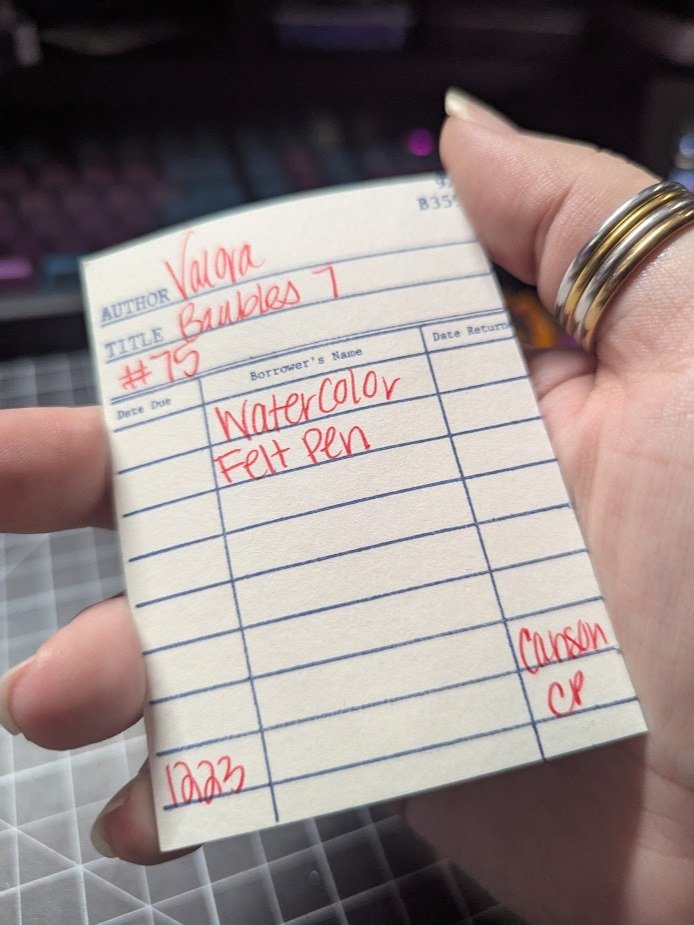 B359
AUTHOR Valora
TITLE Baubles 7
#75
Date Due Borrower's Name Date Return
Watercolor
Felt Pen
Canson
CP
1223